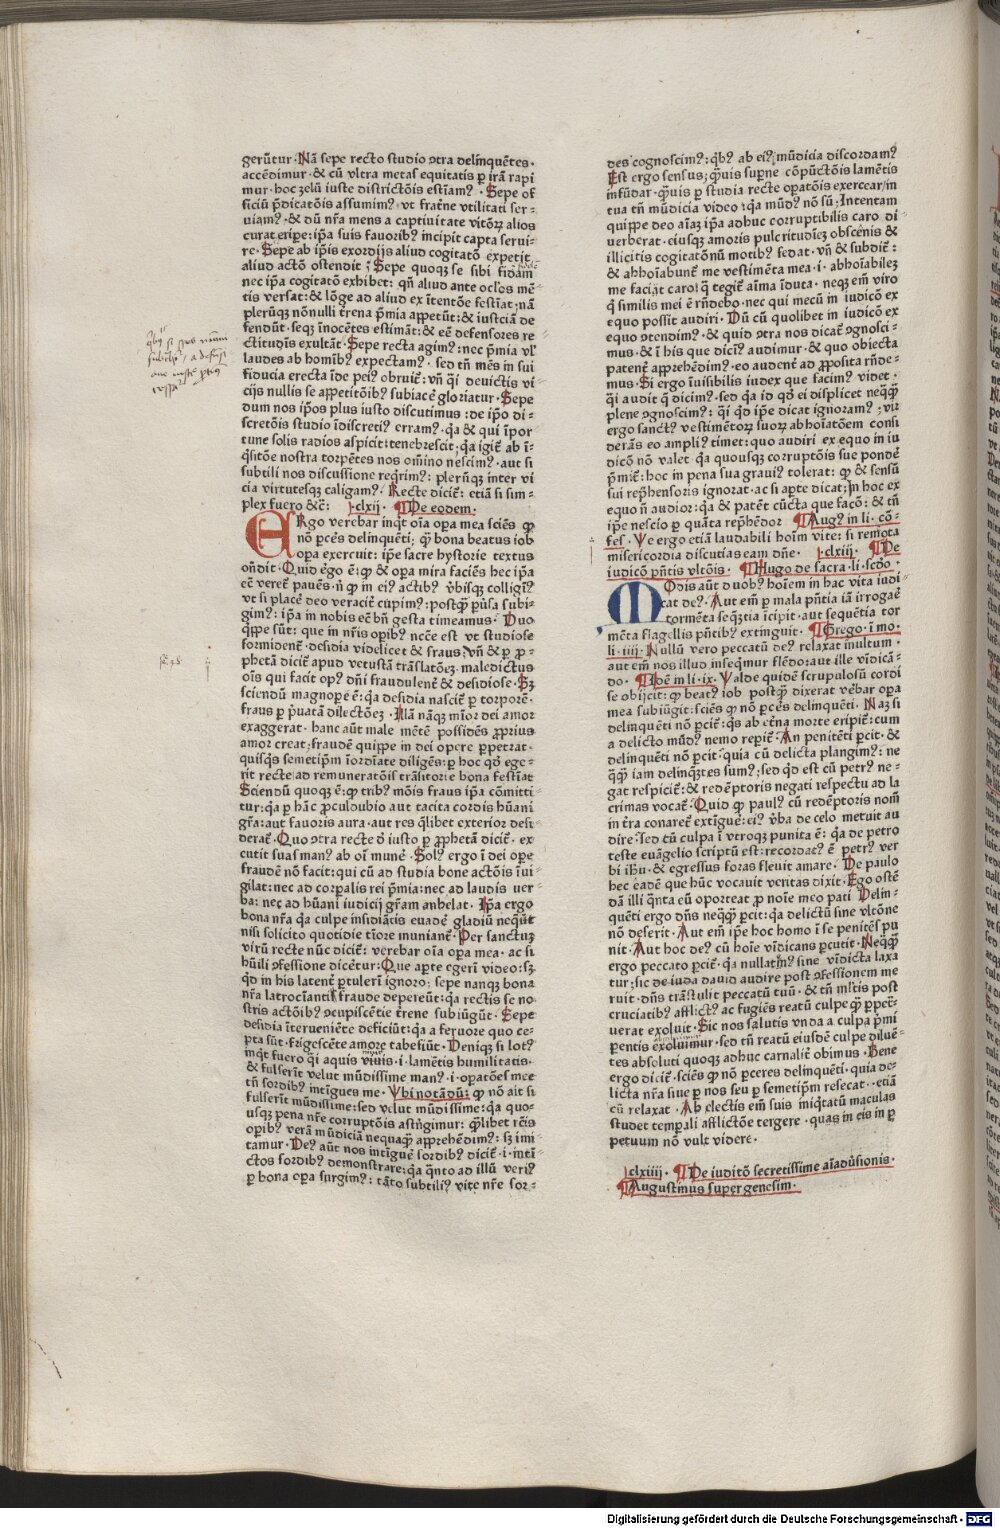 gerūtur · Nā sepe recto studio ɔtra delinquētes ·
accēdimur · & cū vltra metas equitatis ꝑ irā rapi
mur · hoc zelū iuste districtōis estiamꝰ · Sepe of
ficiū p̄dicatōis assumimꝰ ut fratne vtilitati ser⸗
uiamꝰ · & dū nr̄a mens a captiuitate vitōꝝ alios
curat eripe : ip̄a suis fauoribꝰ incipit capta serui⸗
re · Sepe ab ip̄is exordijs aliud cogitatō expetit
aliud actō ostendit · Sepe quoqꝫ se sibi fidam
nec ip̄a cogitatō exhibet : qn̄ aliud ante oclōs mē⸗
tis versat : & lōge ad aliud ex ītentōe festīat · nā
plerūqꝫ nōnulli trena p̄mia appetūt : & iusticiā de
fendūt · seqꝫ inocētes estimāt : & eē defensores re
ctitudīs exultāt · Sepe recta agimꝰ : nec p̄mia vl̕
laudes ab homībꝰ expectamꝰ · sed tn̄ mēs in sui
fiducia erecta īde pei⁹ obruit̄ : vn̄ qi deuictis vi
cijs nullis se appetitōibꝰ subiacē gloriatur · Sepe
dum nos ip̄os plus iusto discutimus : de ip̄o di⸗
scretōis studio īdiscreti⁹ erramꝰ · qa & qui īpor
tune solis radios aspicit : tenebrescit · qa igit̄ ab ī⸗
q̄sitōe nostra torpētes nos om̄ino nescimꝰ · aut si
subtili nos discussione req̄rimꝰ : plerūqꝫ inter vi
cia virtutesqꝫ caligamꝰ · Recte dicit̄ : etiā si sim⸗
plex fuero &c̄ : clxij · ¶ De eodem ·
ERgo verebar inqt oīa opa mea sciēs ꝙ
nō pc̄es delinquēti ; qꝫ bona beatus iob
opa exercuit : ip̄e sacre hystorie textus
on̄dit · Quid ergo ē : ꝙ & opa mira faciēs hec ip̄a
eē veret̄ pauēs · n̄ ꝙ in ei⁹ actibꝰ vbisqꝫ colligit̄
vt si placē deo veracit̄ cupimꝰ : postqꝫ pūsa subi⸗
gimꝰ : ip̄a in nobis eē bn̄ gesta timeamus · Duo
qippe sūt : que in nr̄is opibꝰ necē est vt studiose
formident̄ · desidia videlicet & fraus · vn̄ & ꝑ ꝓ⸗
phetā dicit̄ apud vetustā trāslatōez · maledictus
oīs qui facit opꝰ dn̄i fraudulent̄ & desidiose · Sꝫ
sciendū magnope ē : qa desidia nascit̄ ꝑ torporē ·
fraus ꝑ p̄uatā dilectōez · Illā nāqꝫ mīor dei amor
exaggerat · hanc aūt male mētē possidēs ꝓprius
amor creat · fraudē quippe in dei opere ꝑpetrat ·
quisqꝫ semetip̄m īordīate diligēs : ꝑ hoc qd̄ ege⸗
rit recte ad remuneratōīs trāsitorie bona festīat
Sciendū quoqꝫ ē : ꝙ tribꝰ mōis fraus ip̄a cōmitti⸗
tur : qa ꝑ hāc ꝓculdubio aut tacita cordis hūani
gr̄a : aut fauoris aura · aut res qlibet exterior desi⸗
derat̄ · Quo ɔtra recte d̄ iusto ꝑ ꝓphetā dicit̄ · ex
cutit suas manꝰ ab oī mune · Solꝰ ergo ī dei ope
fraudē nō facit : qui cū ad studia bone actōis īui⸗
gilat : nec ad corpalis rei p̄mia : nec ad laudis uer⸗
ba : nec ad hūani iudicij gr̄am anhelat · Ip̄a ergo
bona nr̄a qa culpe insidiātis euadē gladiū nequūt
nisi solicito quotidie tīore muniant̄ · Per sanctuꝫ
virū recte nūc dicit̄ : verebar oīa opa mea · ac si
hūili ɔfessione dicētur : Que apte egeri video : sꝫ
qd in his latent̄ ꝑtulerī ignoro : sepe nanqꝫ bona
nr̄a latrocīanti fraude depereūt : qa rectis se no⸗
stris actōibꝰ ɔcupiscētie trene subiūgūt · Sepe
desidia īterueniēte deficiūt : qa a feruore quo ce⸗
pta sūt · frigescēte amore tabefiūt · Deniqꝫ si lotꝰ
inqt fuero qi aquis viuis · i · lamētis humilitatis ·
& fulserīt velut mūdissime manꝰ · i · opatōes mee
tn̄ sordibꝰ intīgues me · Vbi notādū : ꝙ nō ait si
fulserīt mūdissime : sed velut mūdissime : qa quo⸗
usqꝫ pena nr̄e corruptōis astn̄gimur : qlibet rēis
opibꝰ verā mūdiciā nequaqꝫ appehēdimꝰ : sꝫ imi⸗
tamur · Deꝰ aūt nos intīguē sordibꝰ dicit̄ · i · inti⸗
ctos sordibꝰ demonstrare : qa qnto ad illū veriꝰ
ꝑ bona opa surgimꝰ : tāto subtiliꝰ vite nr̄e sor⸗
des cognoscimꝰ : qbꝰ ab eiꝰ mūdicia discordamꝰ
Est ergo sensus ; qꝫuis supne cōpūctōis lamētis
infūdar · qꝫuis ꝑ studia recte opatōis exercear / in
tua tn̄ mūdicia video : qa mūdꝰ nō sū ; Intentam
quippe deo aīaꝫ ip̄a adhuc corruptibilis caro di⸗
uerberat · eiusqꝫ amoris pulcritudīeꝫ obscenis &
illicitis cogitatōnū motibꝰ fedat · vn̄ & subdit̄ :
& abhoīabunt̄ me vestimēta mea · i · abhoīabileꝫ
me faciāt caro qꝫ tegit̄ aīma īduta · neqꝫ em̄ viro
q̄ similis mei ē rn̄debo · nec qui mecū in iudicō ex
equo possit audiri · Dū cū quolibet in iudicō ex
equo ɔtendimꝰ · & quid ɔtra nos dicat̄ ɔgnosci⸗
mus · & ī his que diciꝰ audimur · & quo obiecta
patent̄ appehēdimꝰ · eo audent̄ ad ꝓposita rn̄de⸗
mus · Si ergo īuisibilis iudex que facimꝰ videt ·
qi audit q̄ dicimꝰ · sed qa id qd̄ ei displicet neqꝫqꝫ
plene ɔgnoscimꝰ : qi qd ip̄e dicat ignoramꝰ ; vir
ergo sanctꝰ vestimētoꝝ suoꝝ abhoīatōem consi
derās eo ampliꝰ timet : quo audiri ex equo in iu
dicō nō valet · qa quousqꝫ corruptōis sue pondē
p̄mit̄ : hoc in pena sua grauiꝰ tolerat : ꝙ & sensū
sui rep̄hensoris ignorat · ac si apte dicat ; In hoc ex
equo n̄ audior : qa & patēt cūcta que facō : & tn̄
ip̄e nescio ꝑ quāta rep̄hēdor ¶ Augꝰ in li · cō⸗
fes · Ve ergo etiā laudabili hoīm vite : si remota
misericordia discutias eam dn̄e · clxiij · ¶ De
iudicō pn̄tis vltōis · ¶ Hugo de sacra · li · scd̄o ·
MOdis aūt duobꝰ hoīem in hac vita iudi⸗
cat deꝰ · Aut em̄ ꝑ mala pn̄tia iā irrogat̄
tormēta seqꝫtia īcipit · aut sequētia tor
mēta flagellis pn̄tibꝰ extinguit · ¶ Grego · ī mo ·
li · iiij · Nullū vero peccatū deꝰ relaxat inultum ·
aut em̄ nos illud inseqmur flēdo : aut ille vīdicā⸗
do · ¶ Idē in li · ix · Valde quidē scrupulosū cordi
se obijcit : ꝙ beatꝰ iob postqꝫ dixerat vēbar opa
mea subiūgit : sciēs ꝙ nō pc̄es delinquēti · Naꝫ si
delinquēti nō pcit̄ : qs ab etna morte eripit̄ : cum
a delicto mūdꝰ nemo repit̄ · An penitēti pcit · &
delinquēti nō pcit · quia cū delicta plangimꝰ : ne
qꝫqꝫ iam delinqꝫtes sumꝰ ; sed qd est cū petrꝰ ne⸗
gat respicit̄ : & redēptoris negati respectu ad la
crimas vocat̄ · Quid ꝙ paulꝰ cū redēptoris nom̄
in tr̄a conaret̄ extiguē : eiꝰ v̄ba de celo metuit au
dire · sed tū culpa ī vtroqꝫ punita ē : qa de petro
teste euāgelio scriptū est : recordatꝰ ē petrꝰ ver
bi ih̄u · & egressus foras fleuit amare · De paulo
hec eadē que hūc vocauit veritas dixit · Ego ostē
dā illi qnta eū oporteat ꝑ noīe meo pati Delin⸗
quēti ergo dn̄s neqꝫqꝫ pcit : qa delictū sine vltōne
nō deserit · Aut em̄ ip̄e hoc homo ī se penitēs pu
nit · Aut hoc deꝰ cū hoīe vīdicans pcutit · Neqꝫqꝫ
ergo peccato pcit̄ · qa nullatīꝰ sine vīdicta laxa
tur ; sic de iuda dauid audire post ɔfessionem me
ruit · dn̄s trāstulit peccatū tuū · & tn̄ mltis post
cruciatibꝰ afflictꝰ ac fugiēs reatū culpe qꝫ ꝑpet̄⸗
uerat exoluit · Sic nos salutis vnda a culpa p̄mi
pentis exoluimur · sed tn̄ reatū eiusdē culpe diluē⸗
tes absoluti quoqꝫ adhuc carnalit̄ obimus · Bene
ergo dicit̄ · sciēs ꝙ nō pceres delinquēti · quia de⸗
licta nr̄a siue ꝑ nos seu ꝑ semetip̄m resecat · etiā
cū relaxat · Ab electis em̄ suis iniqtatū maculas
studet tempali afflictōe tergere · quas in eis in p
petuum nō vult videre ·
clxiiij · ¶ De iuditō secretissime aīaduˢionis ·
¶ Augustinus super genesim ·
Digitalisierung gefördert durch die Deutsche Forschungsgemeinschaft · DFG